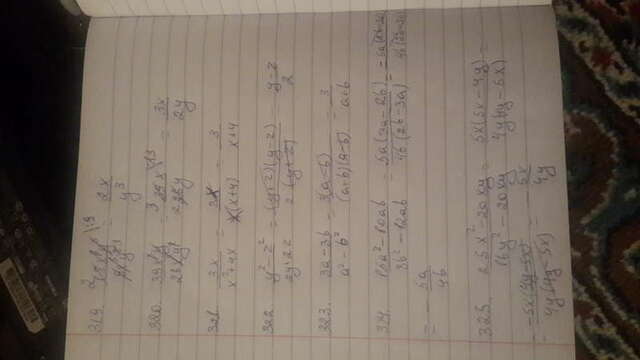 319. 18x⁴y / 9x³y⁴ = 2x / y³
320. 39x³y / 26x²y² = 39x / 26y = 3x / 2y
321. 3x / x²+4x = 3x / x(x+4) = 3 / x+4
322. y²-z² / 2y+2z = (y+z)(y-z) / 2(y+z) = y-z / 2
323. 3a-3b / a²-b² = 3(a-b) / (a+b)(a-b) = 3 / a+b
324. 15a²-10ab / 8b²-12ab = 5a(3a-2b) / 4b(2b-3a) =
= - 5a / 4b
325. 25x²-20xy / 16y²-20xy = 5x(5x-4y) / 4y(4y-5x) =
= -5x(4y-5x) / 4y(4y-5x) = - 5x / 4y